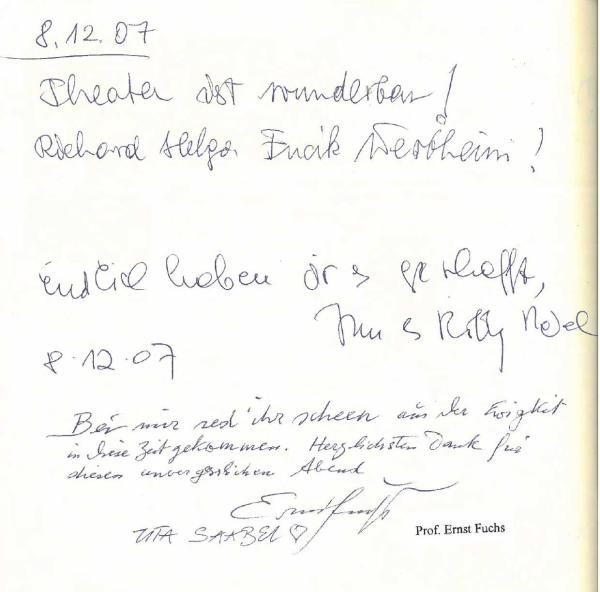 8.12.07
Theater ist wunderbar!
Richard Helga Wertheim!
Endlich haben es geschafft,
8.12.07
Bei mir red' ihr scheen aus der Ewigkeit
in diese Zeit gekommen. Herzlichsten Dank für
diesen unvergesslichen Abend
Ernst Fuchs
UTA SAABEL ♡
Prof. Ernst Fuchs